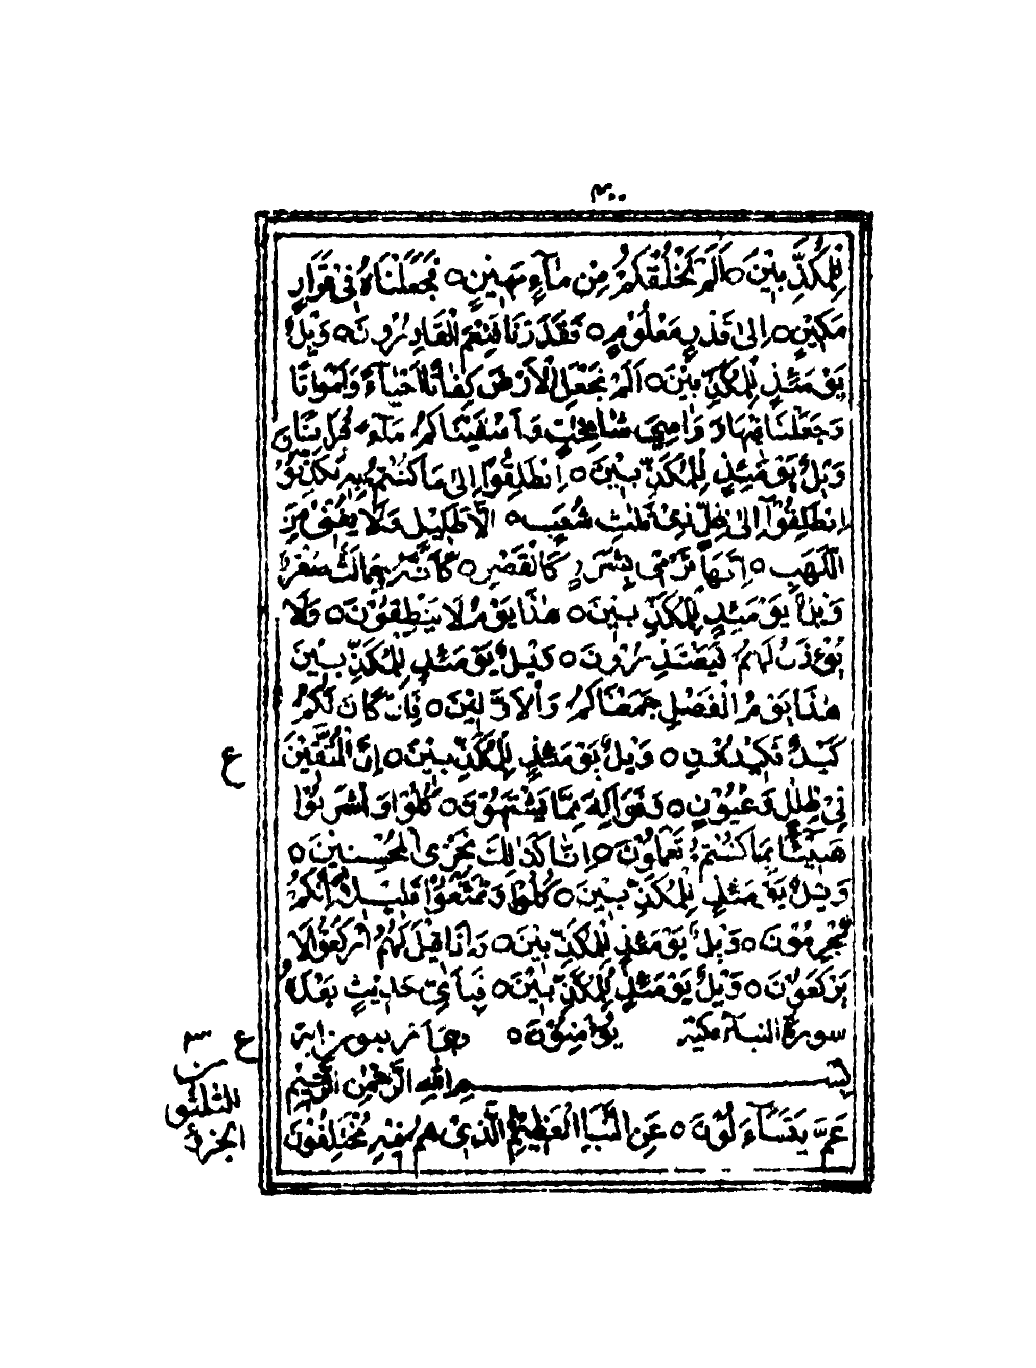 ٣٠٠
لِّلْمُكَذِّبِيْنَ ۝ اَلَمْ نَخْلُقْكُّمْ مِّنْ مَّآءٍ مَّهِيْنٍ ۝ فَجَعَلْنٰهُ فِيْ قَرَارٍ
مَّكِيْنٍ ۝ اِلٰى قَدَرٍ مَّعْلُوْمٍ ۝ فَقَدَرْنَا فَنِعْمَ الْقَادِرُوْنَ ۝ وَيْلٌ
يَّوْمَئِذٍ لِّلْمُكَذِّبِيْنَ ۝ اَلَمْ نَجْعَلِ الْاَرْضَ كِفَاتًا اَحْيَآءً وَّاَمْوَاتًا
وَّجَعَلْنَا فِيْهَا رَوَاسِيَ شٰمِخٰتٍ وَّاَسْقَيْنَاكُمْ مَّآءً فُرَاتًا ۝
وَيْلٌ يَّوْمَئِذٍ لِّلْمُكَذِّبِيْنَ ۝ اِنْطَلِقُوْا اِلٰى مَا كُنْتُمْ بِهٖ تُكَذِّبُوْنَ
اِنْطَلِقُوْٓا اِلٰى ظِلٍّ ذِيْ ثَلٰثِ شُعَبٍ ۝ لَّا ظَلِيْلٍ وَّلَا يُغْنِيْ مِنَ
اللَّهَبِ ۝ اِنَّهَا تَرْمِيْ بِشَرَرٍ كَالْقَصْرِ ۝ كَاَنَّهٗ جِمٰلَتٌ صُفْرٌ
وَيْلٌ يَّوْمَئِذٍ لِّلْمُكَذِّبِيْنَ ۝ هٰذَا يَوْمُ لَا يَنْطِقُوْنَ ۝ وَلَا
يُؤْذَنُ لَهُمْ فَيَعْتَذِرُوْنَ ۝ وَيْلٌ يَّوْمَئِذٍ لِّلْمُكَذِّبِيْنَ
هٰذَا يَوْمُ الْفَصْلِ جَمَعْنَاكُمْ وَالْاَوَّلِيْنَ ۝ فَاِنْ كَانَ لَكُمْ
كَيْدٌ فَكِيْدُوْنِ ۝ وَيْلٌ يَّوْمَئِذٍ لِّلْمُكَذِّبِيْنَ ۝ اِنَّ الْمُتَّقِيْنَ
ع
فِيْ ظِلٰلٍ وَّعُيُوْنٍ ۝ وَّفَوَاكِهَ مِمَّا يَشْتَهُوْنَ ۝ كُلُوْا وَاشْرَبُوْا
هَنِيْٓئًا بِمَا كُنْتُمْ تَعْمَلُوْنَ ۝ اِنَّا كَذٰلِكَ نَجْزِي الْمُحْسِنِيْنَ ۝
وَيْلٌ يَّوْمَئِذٍ لِّلْمُكَذِّبِيْنَ ۝ كُلُوْا وَتَمَتَّعُوْا قَلِيْلًا اِنَّكُمْ
مُّجْرِمُوْنَ ۝ وَيْلٌ يَّوْمَئِذٍ لِّلْمُكَذِّبِيْنَ ۝ وَاِذَا قِيْلَ لَهُمُ ارْكَعُوْا لَا
يَرْكَعُوْنَ ۝ وَيْلٌ يَّوْمَئِذٍ لِّلْمُكَذِّبِيْنَ ۝ فَبِاَيِّ حَدِيْثٍ بَعْدَهٗ
سورة النبأ مكية يُؤْمِنُوْنَ ۝ وهى اربعون اية
ع
٣
بِسْمِ اللهِ الرَّحْمٰنِ الرَّحِيْمِ
عَمَّ يَتَسَآءَلُوْنَ ۝ عَنِ النَّبَاِ الْعَظِيْمِ الَّذِيْ هُمْ فِيْهِ مُخْتَلِفُوْنَ
الثلثون
الجزء